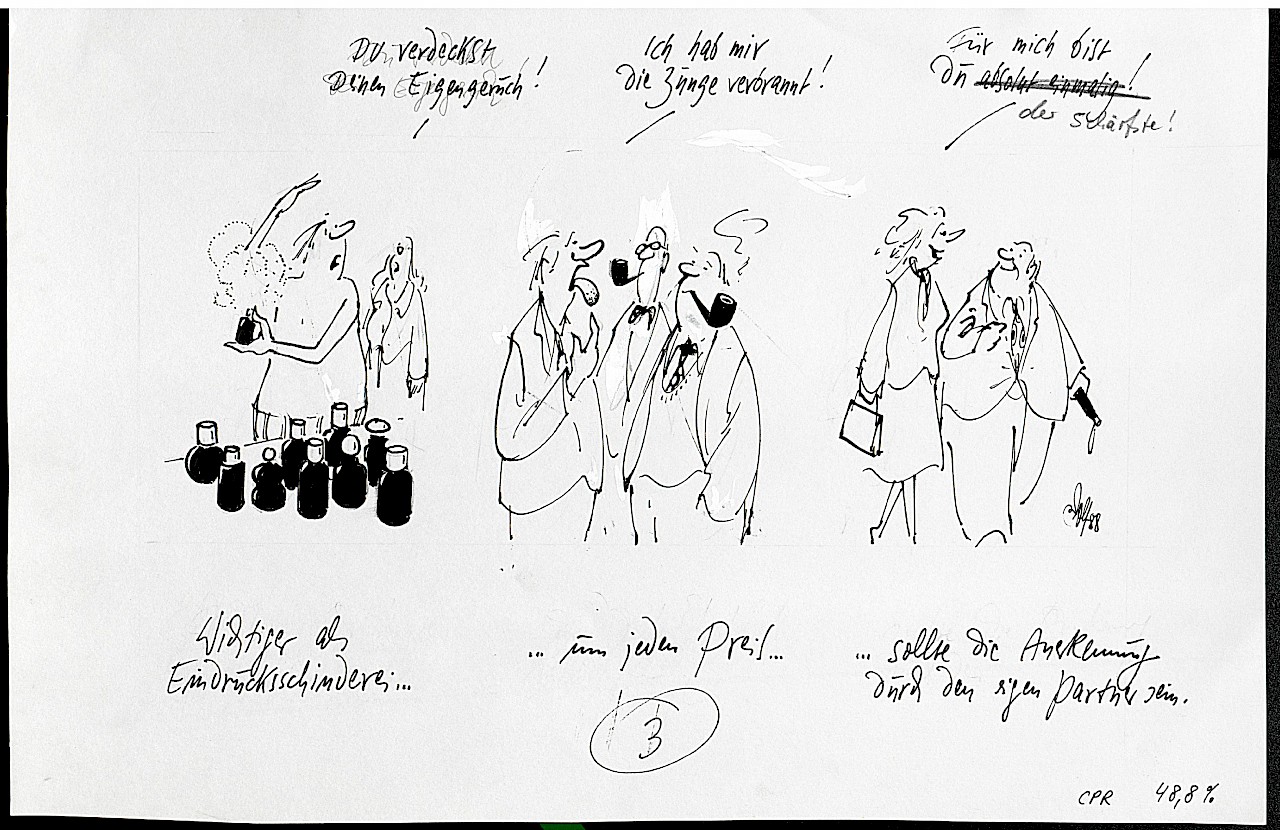 Du verdeckst
Deinen Eigengeruch!
Ich hab mir
die Zunge verbrannt!
Für mich bist
Du absolut einmalig!
der Schärfste!
Wichtiger als
Eindrucksschinderei...
... um jeden Preis...
... sollte die Anerkennung
durch den eigen Partner sein.
3
88
CPR 48,8%